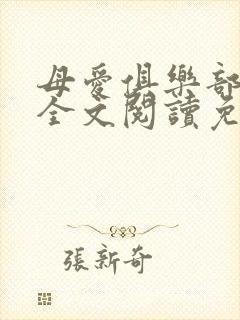 母愛俱樂部
全文閱讀免
張新奇